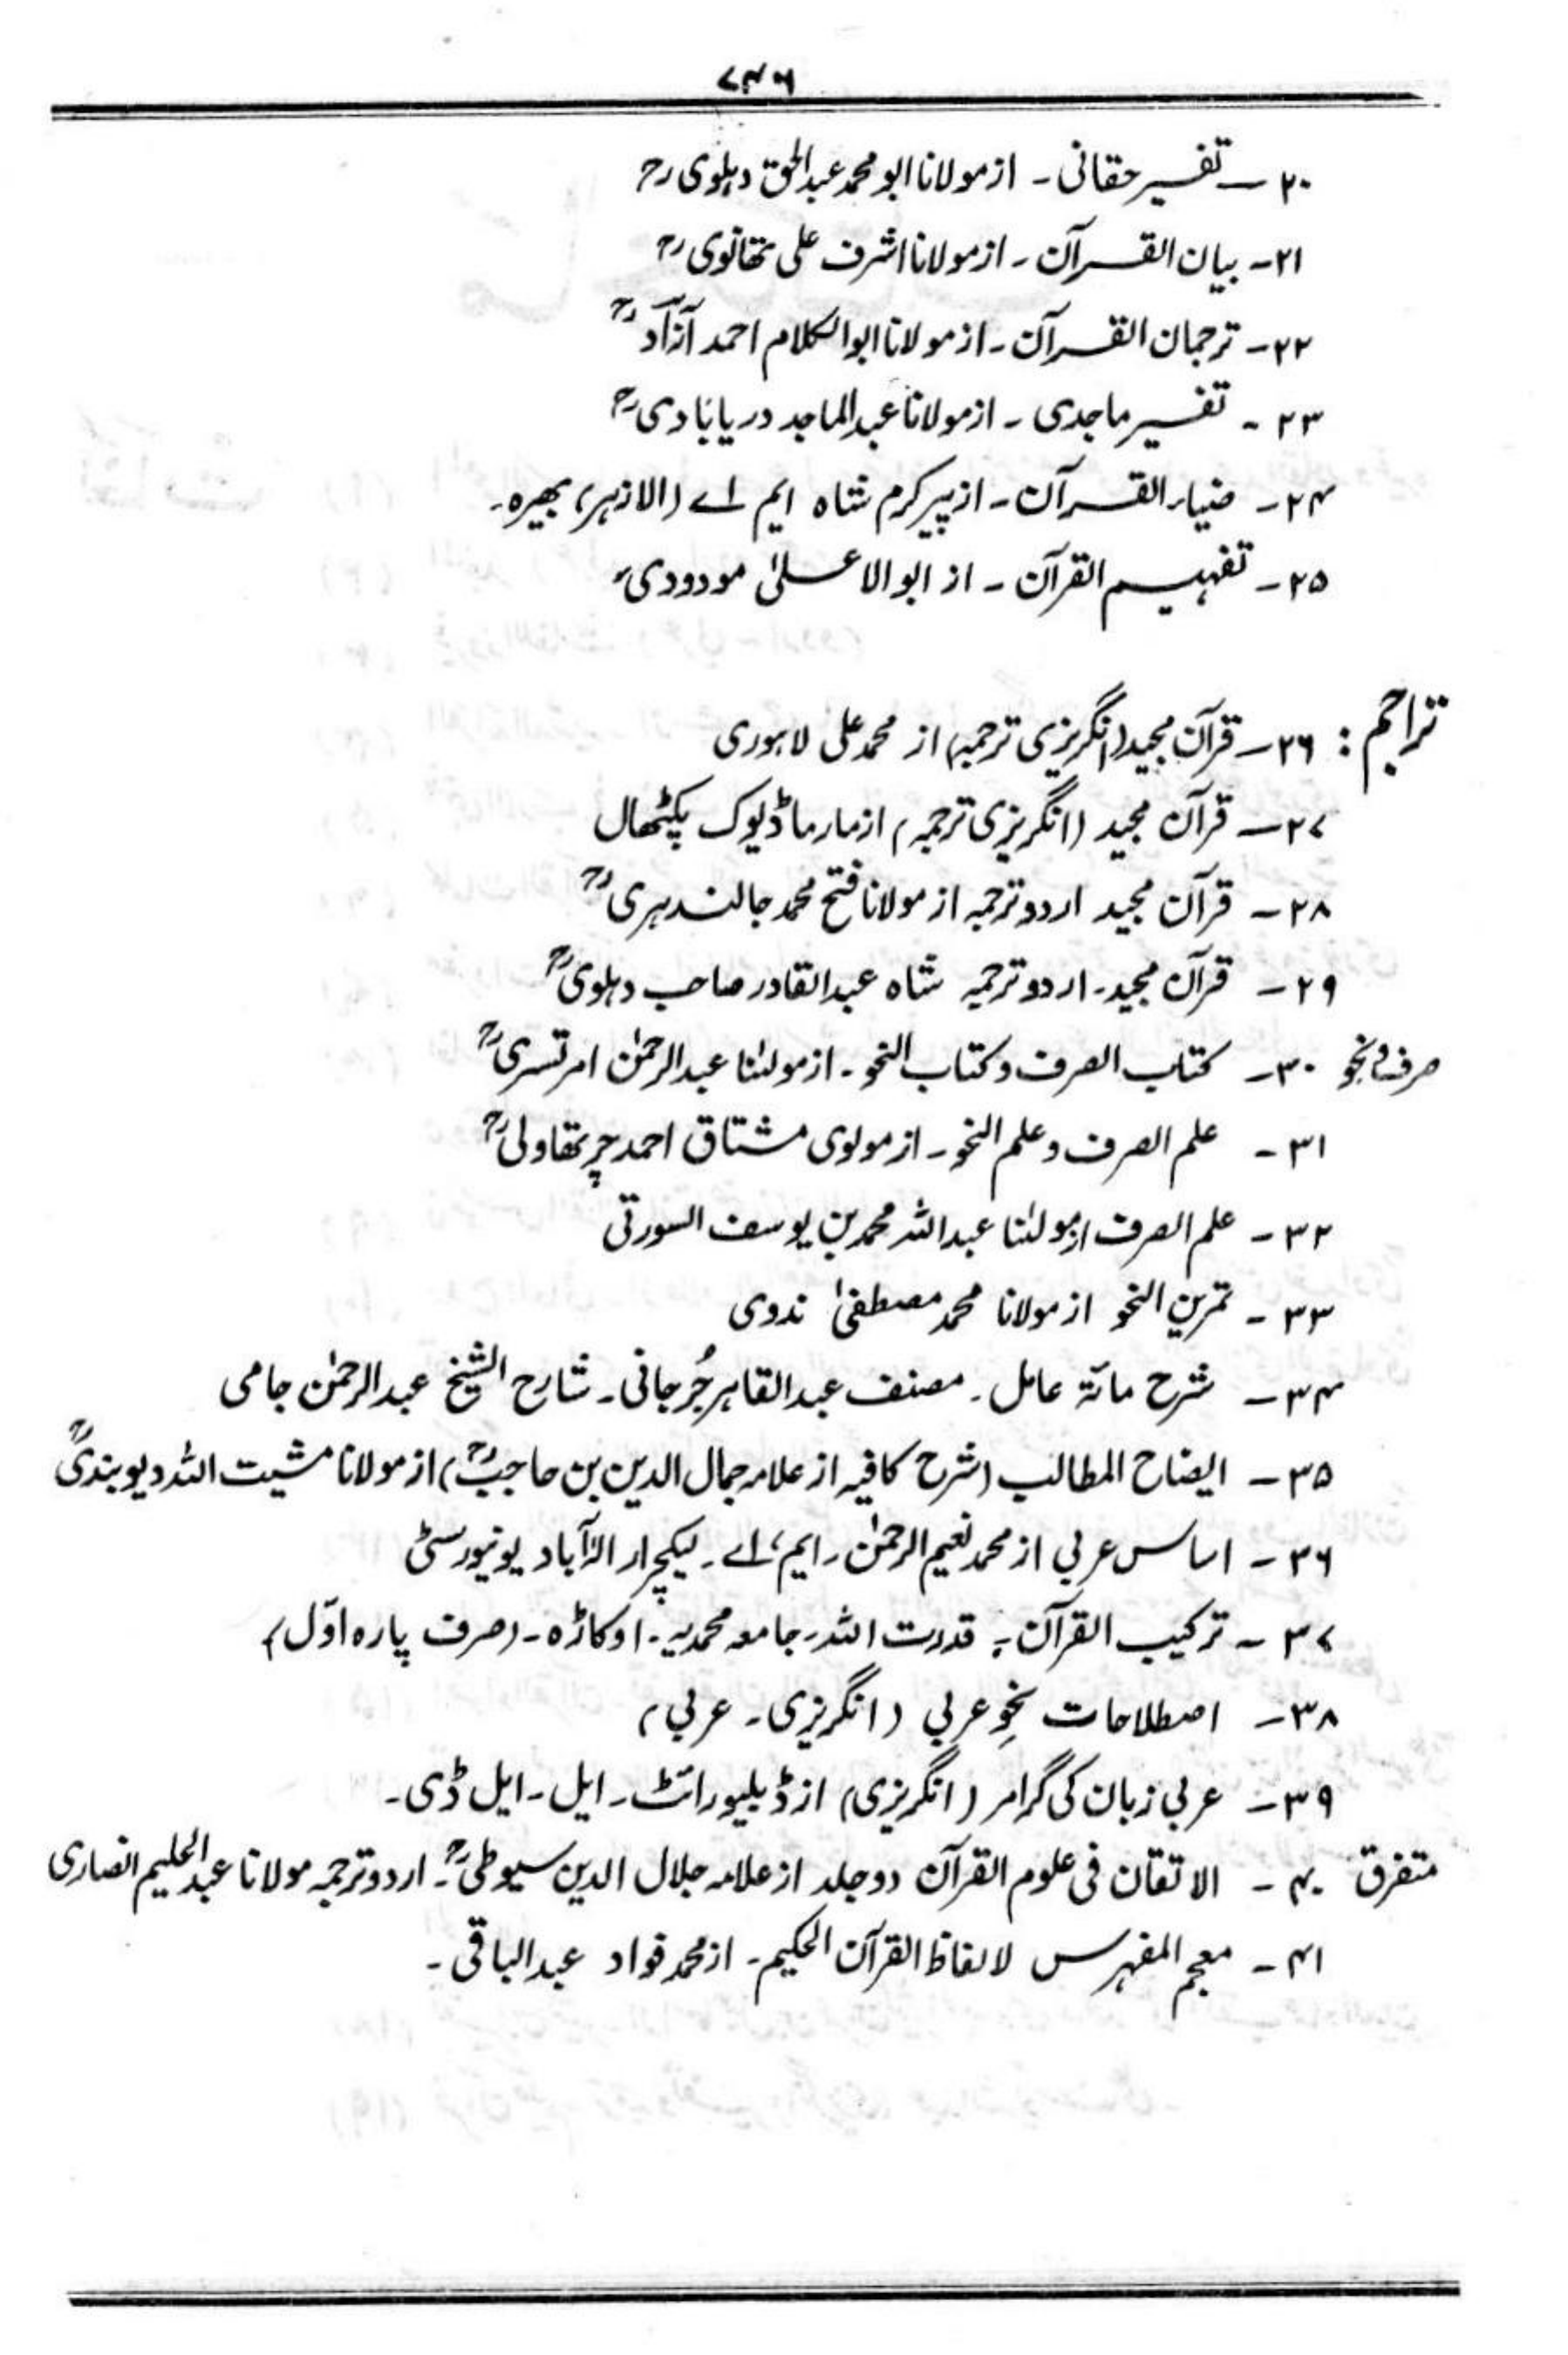 ۷۴۶
۲۰ــ تفسیر حقانی ـ از مولانا ابو محمد عبدالحق دہلوی رح
۲۱ـ بیان القرآن ـ از مولانا اشرف علی تھانوی رح
۲۲ـ ترجمان القرآن ـ از مولانا ابوالکلام احمد آزادؒ
۲۳ ـ تفسیر ماجدی ـ از مولانا عبدالماجد دریابادیؒ
۲۴ـ ضیاء القرآن ـ از پیر کرم شاہ ایم اے (الازہر) بھیرہ۔
۲۵ـ تفہیم القرآن ـ از ابوالاعلیٰ مودودیؒ
تراجم : ۲۶ــ قرآن مجید (انگریزی ترجمہ) از محمد علی لاہوری
۲۷ــ قرآن مجید (انگریزی ترجمہ) از مارماڈیوک پکٹھال
۲۸ـ قرآن مجید اردو ترجمہ از مولانا فتح محمد جالندہریؒ
۲۹ـ قرآن مجید۔ اردو ترجمہ شاہ عبدالقادر صاحب دہلویؒ
صرف و نحو ۳۰ـ کتاب الصرف و کتاب النحو ـ از مولٰنا عبدالرحمٰن امرتسریؒ
۳۱ ـ علم الصرف و علم النحو ـ از مولوی مشتاق احمد چرتھاولیؒ
۳۲ـ علم الصرف از مولٰنا عبداللہ محمد بن یوسف السورتی
۳۳ ـ تمرین النحو از مولانا محمد مصطفیٰ ندوی
۳۴ـ شرح مائۃ عامل۔ مصنف عبدالقاہر جُرجانی۔ شارح الشیخ عبدالرحمٰن جامی
۳۵ـ ایضاح المطالب (شرح کافیہ از علامہ جمال الدین بن حاجبؒ) از مولانا مشیت اللہ دیوبندیؒ
۳۶ـ اساس عربی از محمد نعیم الرحمٰن۔ ایم، اے۔ لیکچرار الٰہ آباد یونیورسٹی
۳۷ـ ترکیب القرآن ۔ قدرت اللہ۔ جامعہ محمدیہ۔ اوکاڑہ۔ (صرف پارہ اوّل)
۳۸ـ اصطلاحات نحوِ عربی (انگریزی۔ عربی)
۳۹ـ عربی زبان کی گرامر (انگریزی) از ڈبلیو رائٹ۔ ایل۔ ایل ڈی۔
متفرق ۴۰ ـ الاتقان فی علوم القرآن دو جلد از علامہ جلال الدین سیوطیؒ۔ اردو ترجمہ مولانا عبدالحلیم انصاری
۴۱ـ معجم المفہرس لالفاظ القرآن الحکیم۔ از محمد فواد عبدالباقی۔